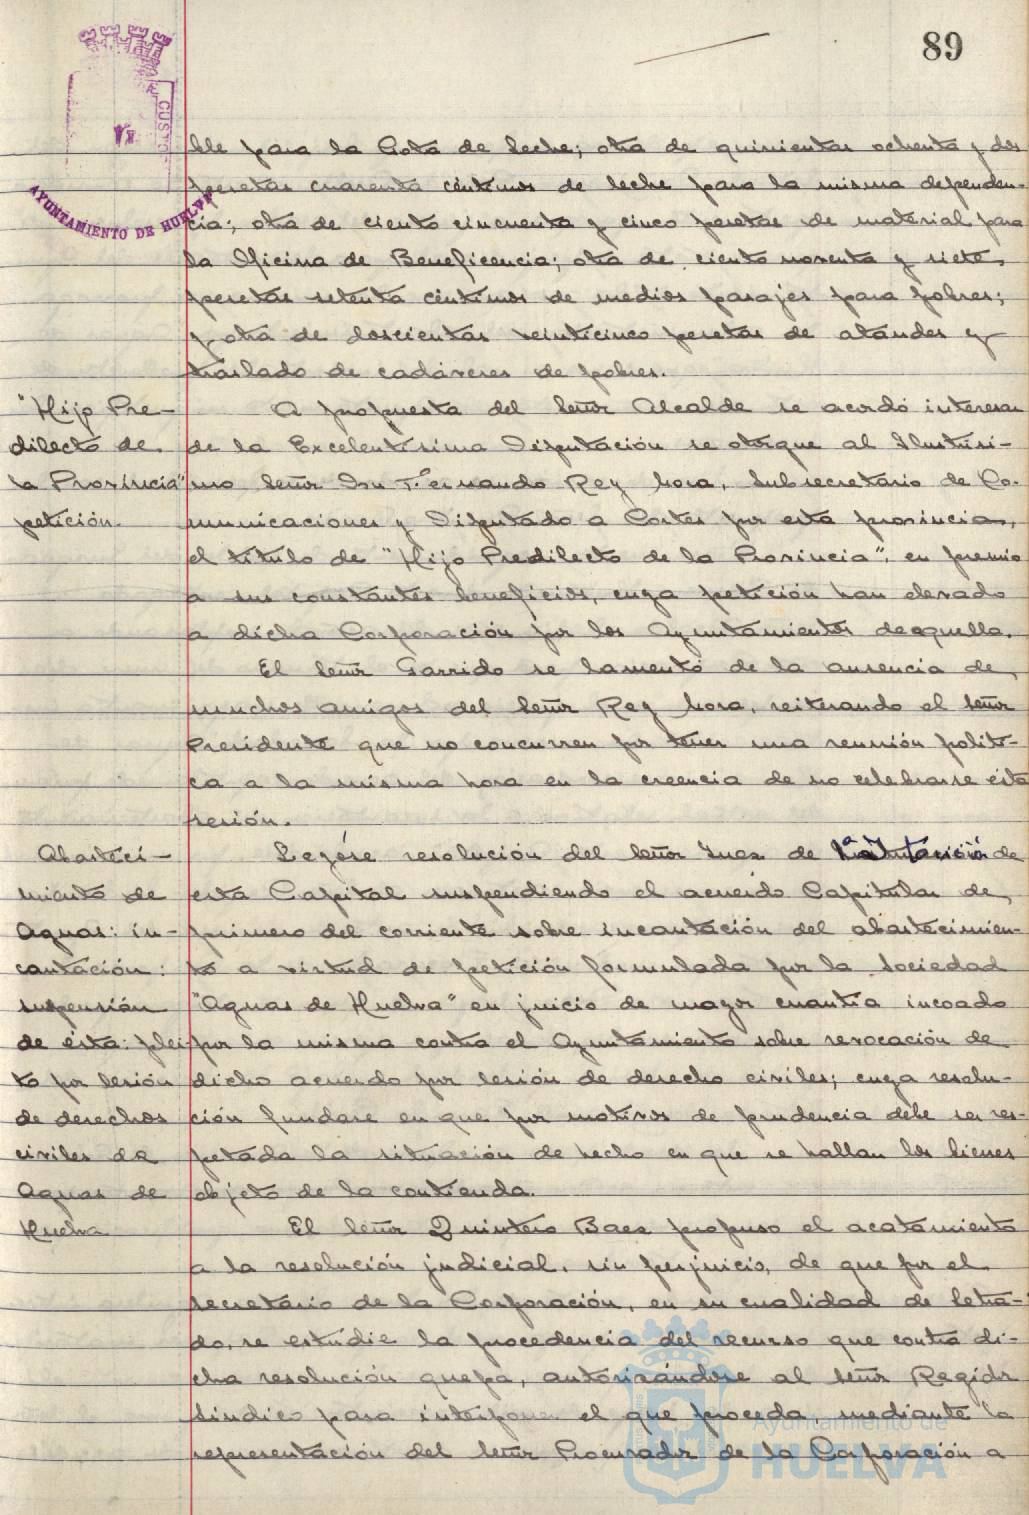 89
CUSTO
AYUNTAMIENTO DE HUELVA
ble para la Gota de Leche; otra de quinientas ochenta y dos
pesetas cuarenta céntimos de leche para la misma dependen-
cia; otra de ciento cincuenta y cinco pesetas de material para
la Oficina de Beneficencia; otra de ciento noventa y siete
pesetas setenta céntimos de medios pasajes para pobres;
y otra de doscientas veinticinco pesetas de ataudes y
traslado de cadáveres de pobres.
"Hijo Pre-
dilecto de
la Provincia"
petición.
A propuesta del Señor Alcalde se acordó interesar
de la Excelentísima Diputación se otorgue al Ilustrísi-
mo Señor Don Fernando Rey Mora, Subsecretario de Co-
municaciones y Diputado a Cortes por esta provincia,
el título de "Hijo Predilecto de la Provincia", en premio
a sus constantes beneficios, cuya petición han elevado
a dicha Corporación por los Ayuntamientos de aquella.
El Señor Garrido se lamentó de la ausencia de
muchos amigos del Señor Rey Mora, reiterando el Señor
Presidente que no concurren por tener una reunión políti-
ca a la misma hora en la creencia de no celebrarse ésta
sesión.
Abasteci-
miento de
Aguas: in-
cautación:
suspensión
de ésta: plei-
to por lesión
de derechos
civiles de
Aguas de
Huelva
Leyóse resolución del Señor Juez de 1ª Instancia de
esta Capital suspendiendo el acuerdo Capitular de
primero del corriente sobre incautación del abastecimien-
to a virtud de petición formulada por la Sociedad
"Aguas de Huelva" en juicio de mayor cuantía incoado
por la misma contra el Ayuntamiento sobre revocación de
dicho acuerdo por lesión de derecho civiles; cuya resolu-
ción fundase en que por motivos de prudencia debe ser res-
petada la situación de hecho en que se hallan los bienes
objeto de la contienda.
El Señor Quintero Baez propuso el acatamiento
a la resolución judicial, sin perjuicio, de que por el
Secretario de la Corporación, en su cualidad de Letra-
do, se estudie la procedencia del recurso que contra di-
cha resolución quepa, autorizándose al Señor Regidor
Síndico para interponer el que proceda, mediante la
representación del Señor Procurador de la Corporación a
Ayuntamiento de
HUELVA